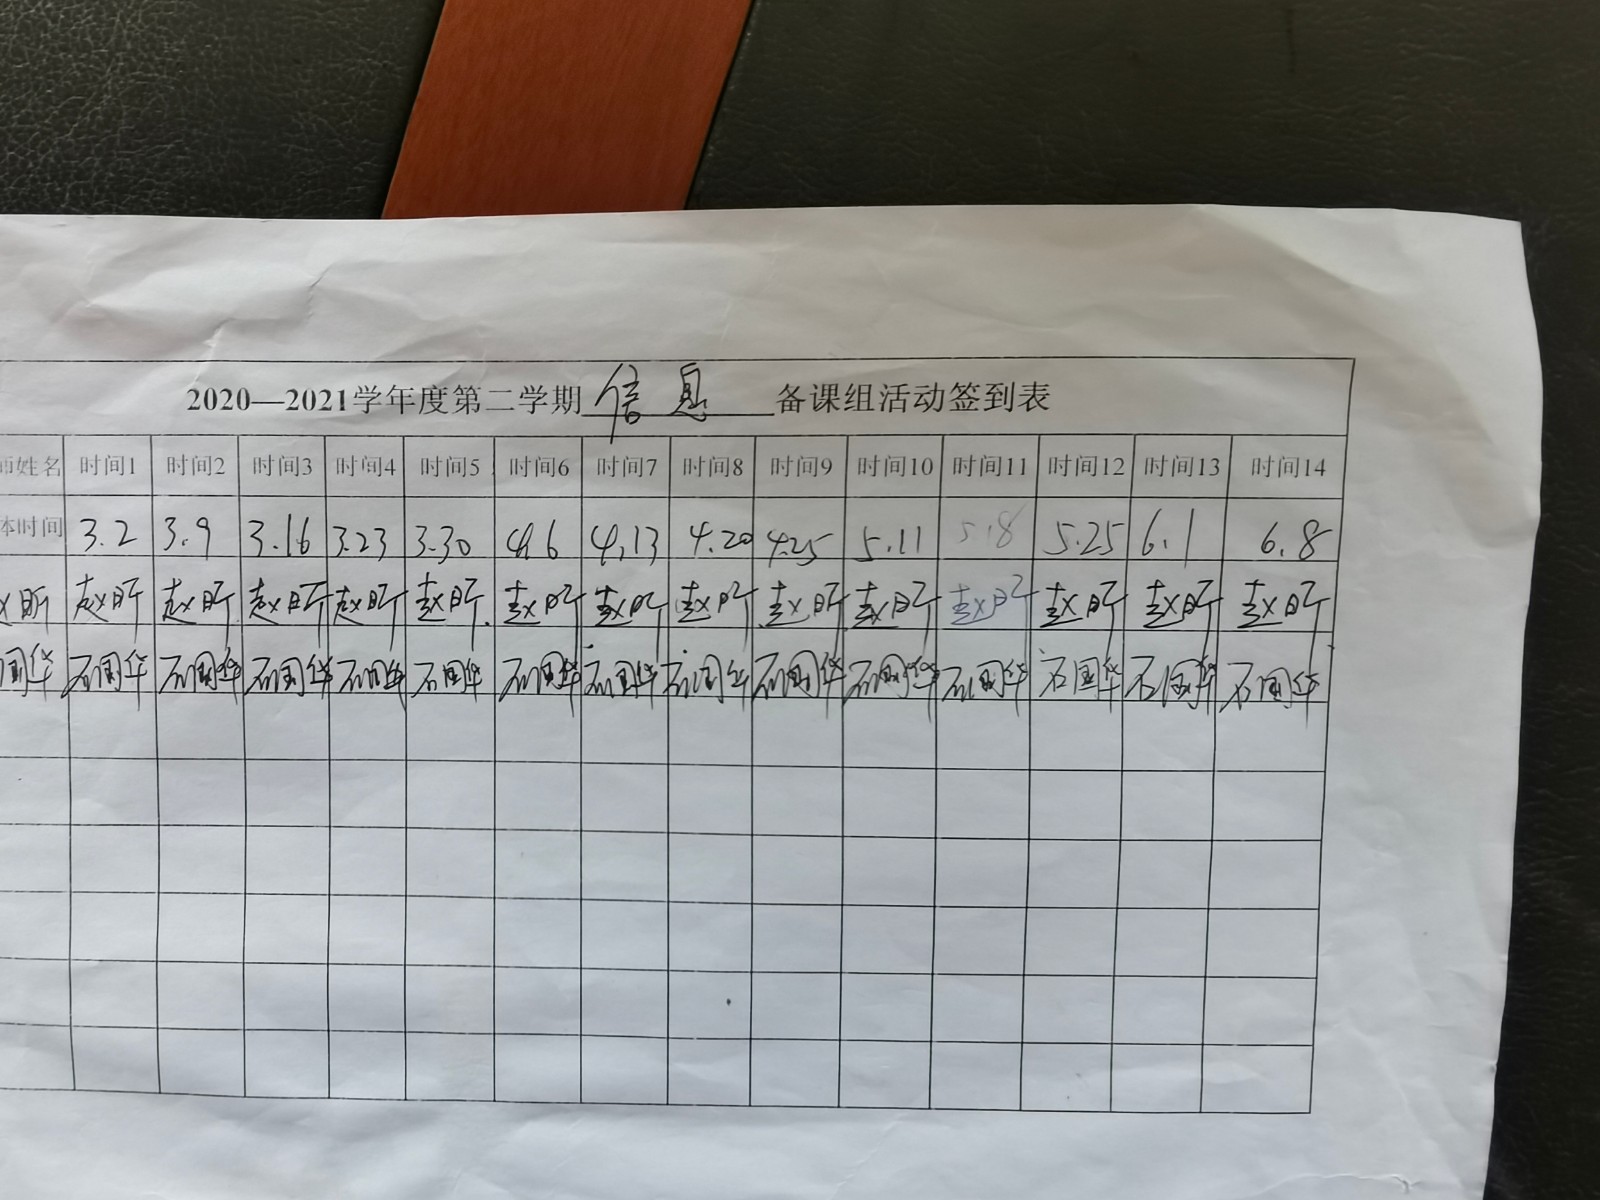 2020—2021学年度第二学期 信息 备课组活动签到表
师姓名 时间1 时间2 时间3 时间4 时间5 时间6 时间7 时间8 时间9 时间10 时间11 时间12 时间13 时间14
体时间 3.2 3.9 3.16 3.23 3.30 4.6 4.13 4.20 4.25 5.11 5.18 5.25 6.1 6.8
赵昕 赵昕 赵昕 赵昕 赵昕 赵昕 赵昕 赵昕 赵昕 赵昕 赵昕 赵昕 赵昕 赵昕 赵昕
国华 石国华 石国华 石国华 石国华 石国华 石国华 石国华 石国华 石国华 石国华 石国华 石国华 石国华 石国华